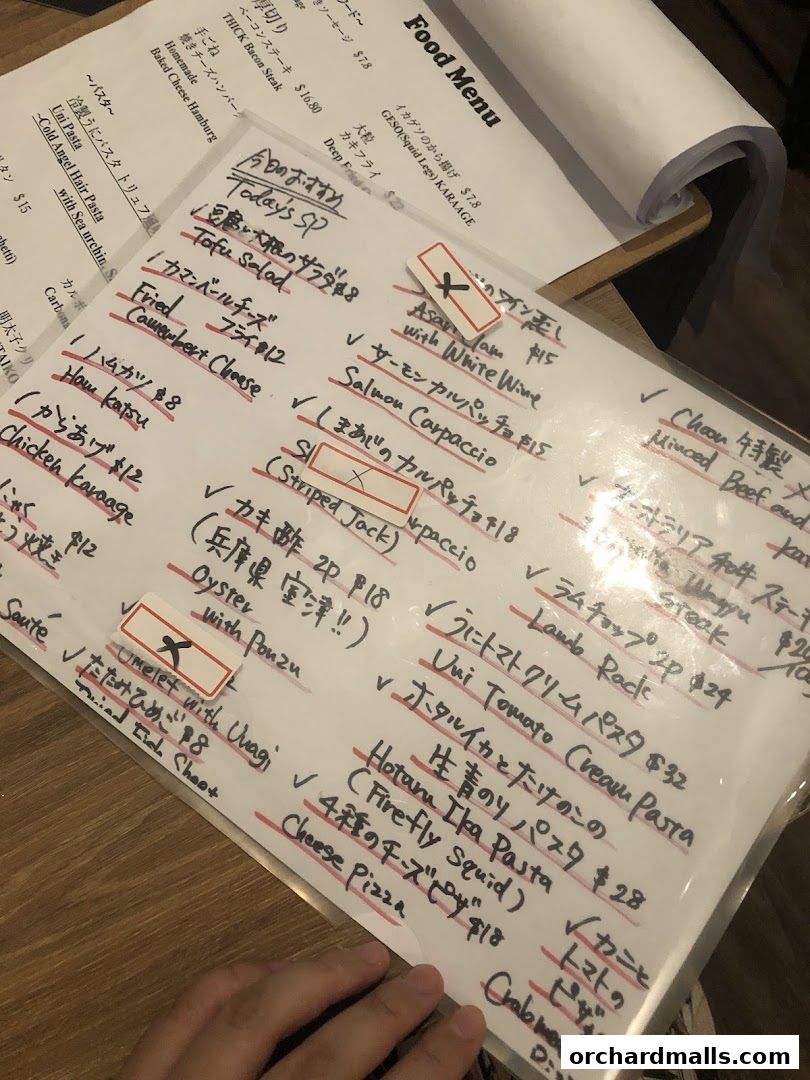 Food Menu
きソーセージ $7.8
厚切り
ベーコンステーキ
THICK Bacon Steak
$16.80
手ごね
焼きチーズハンバーグ
Homemade
Baked Cheese Hamburg
イカゲソのから揚げ $7.8
GESO(Squid Legs) KARAAGE
大粒
カキフライ
Deep
~パスタ~
冷製うにパスタ トリュフ
Uni Pasta
~Cold Angel Hair Pasta
with Sea urchin,
$15
明太子クリ
今日のおすすめ
Today's SP
豆腐と大根のサラダ $8
Tofu Salad
カマンベールチーズ
フライ $12
Fried
Camembert Cheese
ハムカツ $8
Ham katsu
からあげ $12
Chicken karaage
$12
Sauté
たたみひめご $8
のワイン蒸し
Asari Clam $15
with White Wine
サーモンカルパッチョ $15
Salmon Carpaccio
しまあじのカルパッチョ $18
(Striped Jack)
カキ酢 2P $18
(兵庫県室津!!)
Oyster
with Ponzu
Omelet with Unagi
Choon 特製
Minced Beef and
オーストラリア和牛ステーキ
Wagyu
steak
ラムチョップ 2P $24
Lamb Rack
うにトマトクリームパスタ $32
Uni Tomato Cream Pasta
ホタルイカとたけのこの
生青のりパスタ $28
Hotaru Ika Pasta
(Firefly Squid)
4種のチーズピザ $18
Cheese Pizza
カニと
トマトの
ピザ
orchardmalls.com